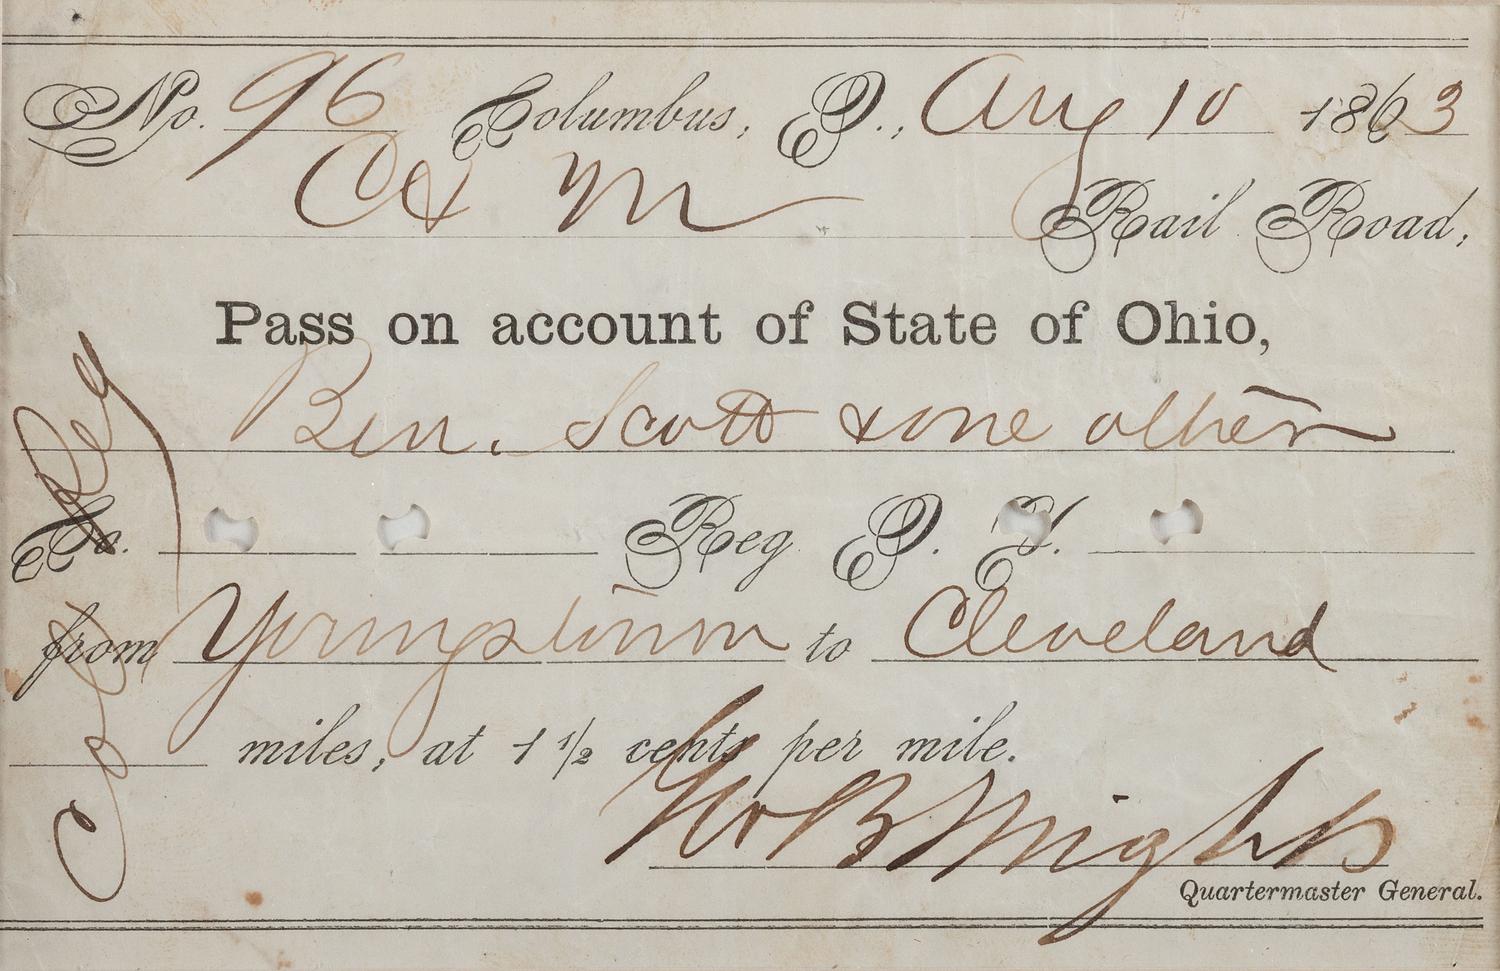 No. 96 Columbus, O., Aug 10 1863
C & M Rail Road,
Pass on account of State of Ohio,
Ben. Scott & one other
Co. Reg O. V.
from Youngstown to Cleveland
miles, at 1 1/2 cents per mile.
Geo B Wright
Quartermaster General.
Col Reg